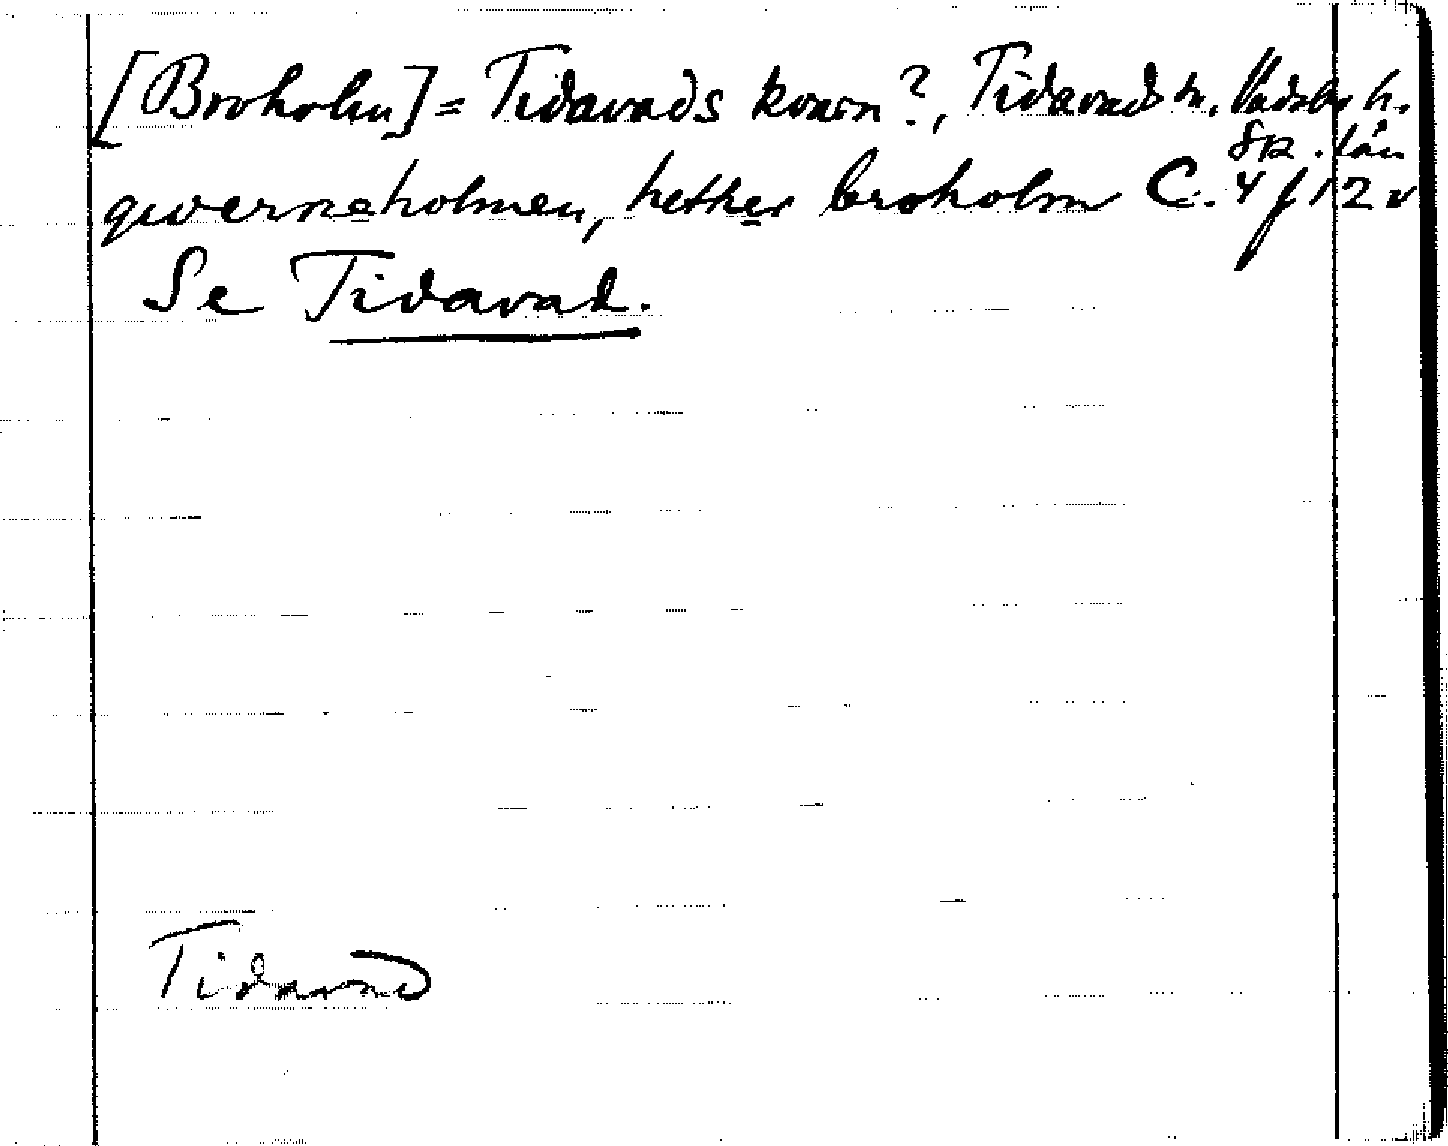 [Broholm] = Tidavads kvarn?, Tidavads sn. Vadsbo h.
Sk. län
qwerneholmen, hether broholm C. 4 f 12 v
Se Tidavad.
Tidavad